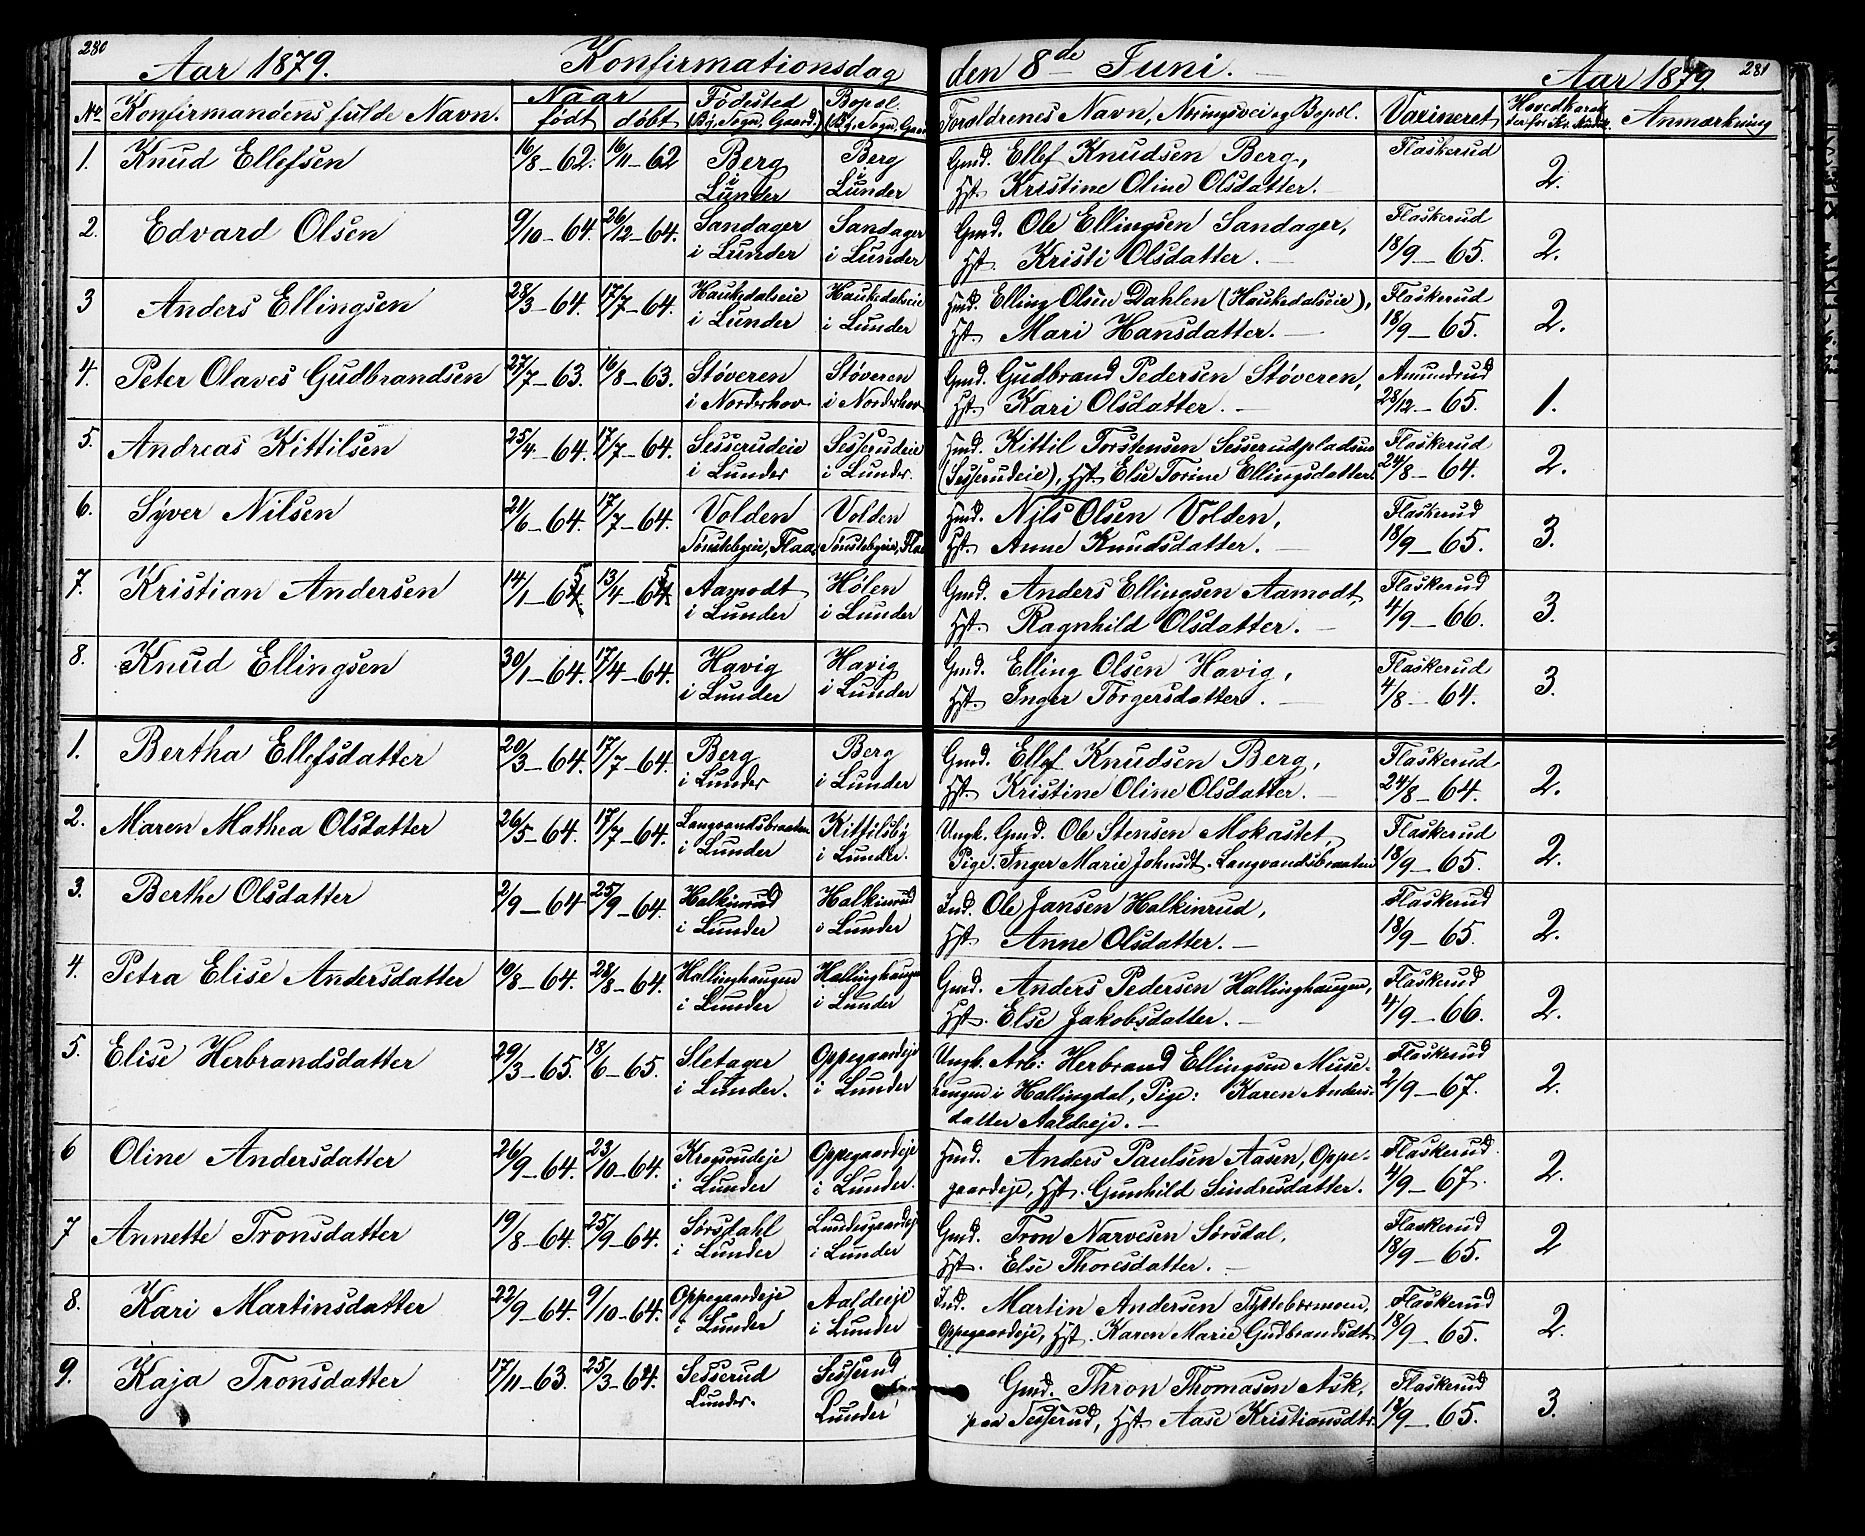 280
Aar 1879. Konfirmationsdag den 8de Juni. Aar 1879. 281
No. Konfirmandens fulde Navn. Naar født døbt Fødested (By, Sogn, Gaard) Bopæl. (By, Sogn, Gaard) Forældrenes Navn, Næringsvei og Bopæl. Vaxineret Anmærkning
1. Knud Ellefsen 16/8-62. 16/11-62 Berg i Lunder Berg i Lunder Gmd. Ellef Knudsen Berg, Flaskerud 2.
Hst. Kristine Oline Olsdatter.
2. Edvard Olsen 9/10-64. 26/12-64. Sandager i Lunder Sandager i Lunder Gmd. Ole Ellingsen Sandager, Flaskerud 2.
Hst. Kristi Olsdatter. 18/9-65.
3 Anders Ellingsen 28/3-64. 17/7-64. Haukedalseie i Lunder Haukedalseie i Lunder Hmd. Elling Olsen Dahlen (Haukedalseie), Flaskerud 2.
Hst. Mari Hansdatter. 18/9-65.
4. Peter Olaves Gudbrandsen 27/7-63. 16/8-63. Støveren i Norderhov Støveren i Norderhov Gmd. Gudbrand Pedersen Støveren, Amundrud 1.
Hst. Kari Olsdatter. 28/12-65.
5. Andreas Kittilsen 25/4-64. 17/7-64. Sesserudeie i Lunder Sesserudeie i Lunder. Hmd. Kittil Torstensen Sesserudpladsen Flaskerud 2.
(Sesserudeie), Hst. Else Torine Ellingsdatter. 24/8-64.
6. Syver Nilsen 21/6-64. 17/7-64. Volden Tønstebyeie, Flaa. Volden Tønstebyeie, Flaa Hmd. Nils Olsen Volden, Flaskerud 3.
Hst. Anne Knudsdatter. 18/9-65.
7. Kristian Andersen 14/1-65 13/4-65 Aamodt i Lunder Hølen i Lunder Gmd. Anders Ellingsen Aamodt, Flaskerud 3.
Hst. Ragnhild Olsdatter. 4/9-66.
8. Knud Ellingsen 30/1-64. 17/4-64. Havig i Lunder Havig i Lunder Gmd. Elling Olsen Havig, Flaskerud 3.
Hst. Inger Torgersdatter. 4/8-64.
1. Bertha Ellefsdatter 20/3-64. 17/7-64. Berg i Lunder Berg i Lunder Gmd. Ellef Knudsen Berg, Flaskerud 2.
Hst. Kristine Oline Olsdatter. 24/8-64.
2. Maren Mathea Olsdatter 26/5-64. 17/7-64. Langrandsbraaten i Lunder Kittilsby i Lunder. Ungk. Gmd. Ole Stensen Mokastet, Flaskerud 2.
Pige: Inger Marie Johnsdt. Langrandsbraaten 18/9-65.
3. Berthe Olsdatter 2/9-64 25/9-64. Halkinrud i Lunder Halkinrud i Lunder Ind. Ole Jansen Halkinrud, Flaskerud 2.
Hst. Anne Olsdatter. 18/9-65.
4. Petra Elise Andersdatter 19/8-64. 28/8-64. Hallinghaugen i Lunder Hallinghaugen i Lunder Gmd. Anders Pedersen Hallinghaugen, Flaskerud 2.
Hst. Else Jakobsdatter. 4/9-66.
5. Elise Herbrandsdatter 29/3-65. 18/6-65. Sletager i Lunder. Oppegaardeje i Lunder Ungk. Arb: Herbrand Ellingsen Muse- Flaskerud 2.
haugen i Hallingdal, Pige: Karen Anders- 2/9-67.
datter Aaldeeje.
6 Oline Andersdatter 26/9-64. 23/10-64. i Lunder Oppegaardeje i Lunder. Hmd. Anders Paulsen Aasen, Oppe- Flaskerud 2.
gaardeje, Hst. Gunhild Sindresdatter. 4/9-67.
7 Annette Tronsdatter 19/8-64. 25/9-64. Sørsdahl i Lunder Lundesgaardeje i Lunder Gmd. Tron Narvesen Sørsdal, Flaskerud 2
Hst. Else Thoresdatter. 18/9-65.
8. Kari Martinsdatter 22/9-64. 9/10-64. Oppegaardeje i Lunder Aaldeeje i Lunder Ind. Martin Andersen Tyttebærmoen, Flaskerud 2.
Oppegaardeje, Hst. Karen Marie Gudbrandsdt. 18/9-65.
9. Kaja Tronsdatter 17/11-63. 25/3-64. Sesserud Lunder. Sesserud Lunder Gmd. Thron Thomasen Ask, Flaskerud 3.
paa Sesserud, Hst. Aase Kristiansdtr. 18/9-65.